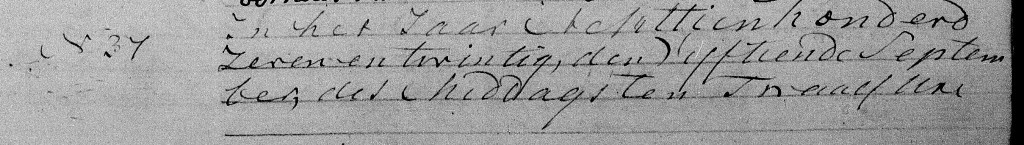 N 37
In het Jaar Achttienhonderd
Zevenentwintig, den Vijftiende Septem
ber, des Middags ten Twaalf Ure